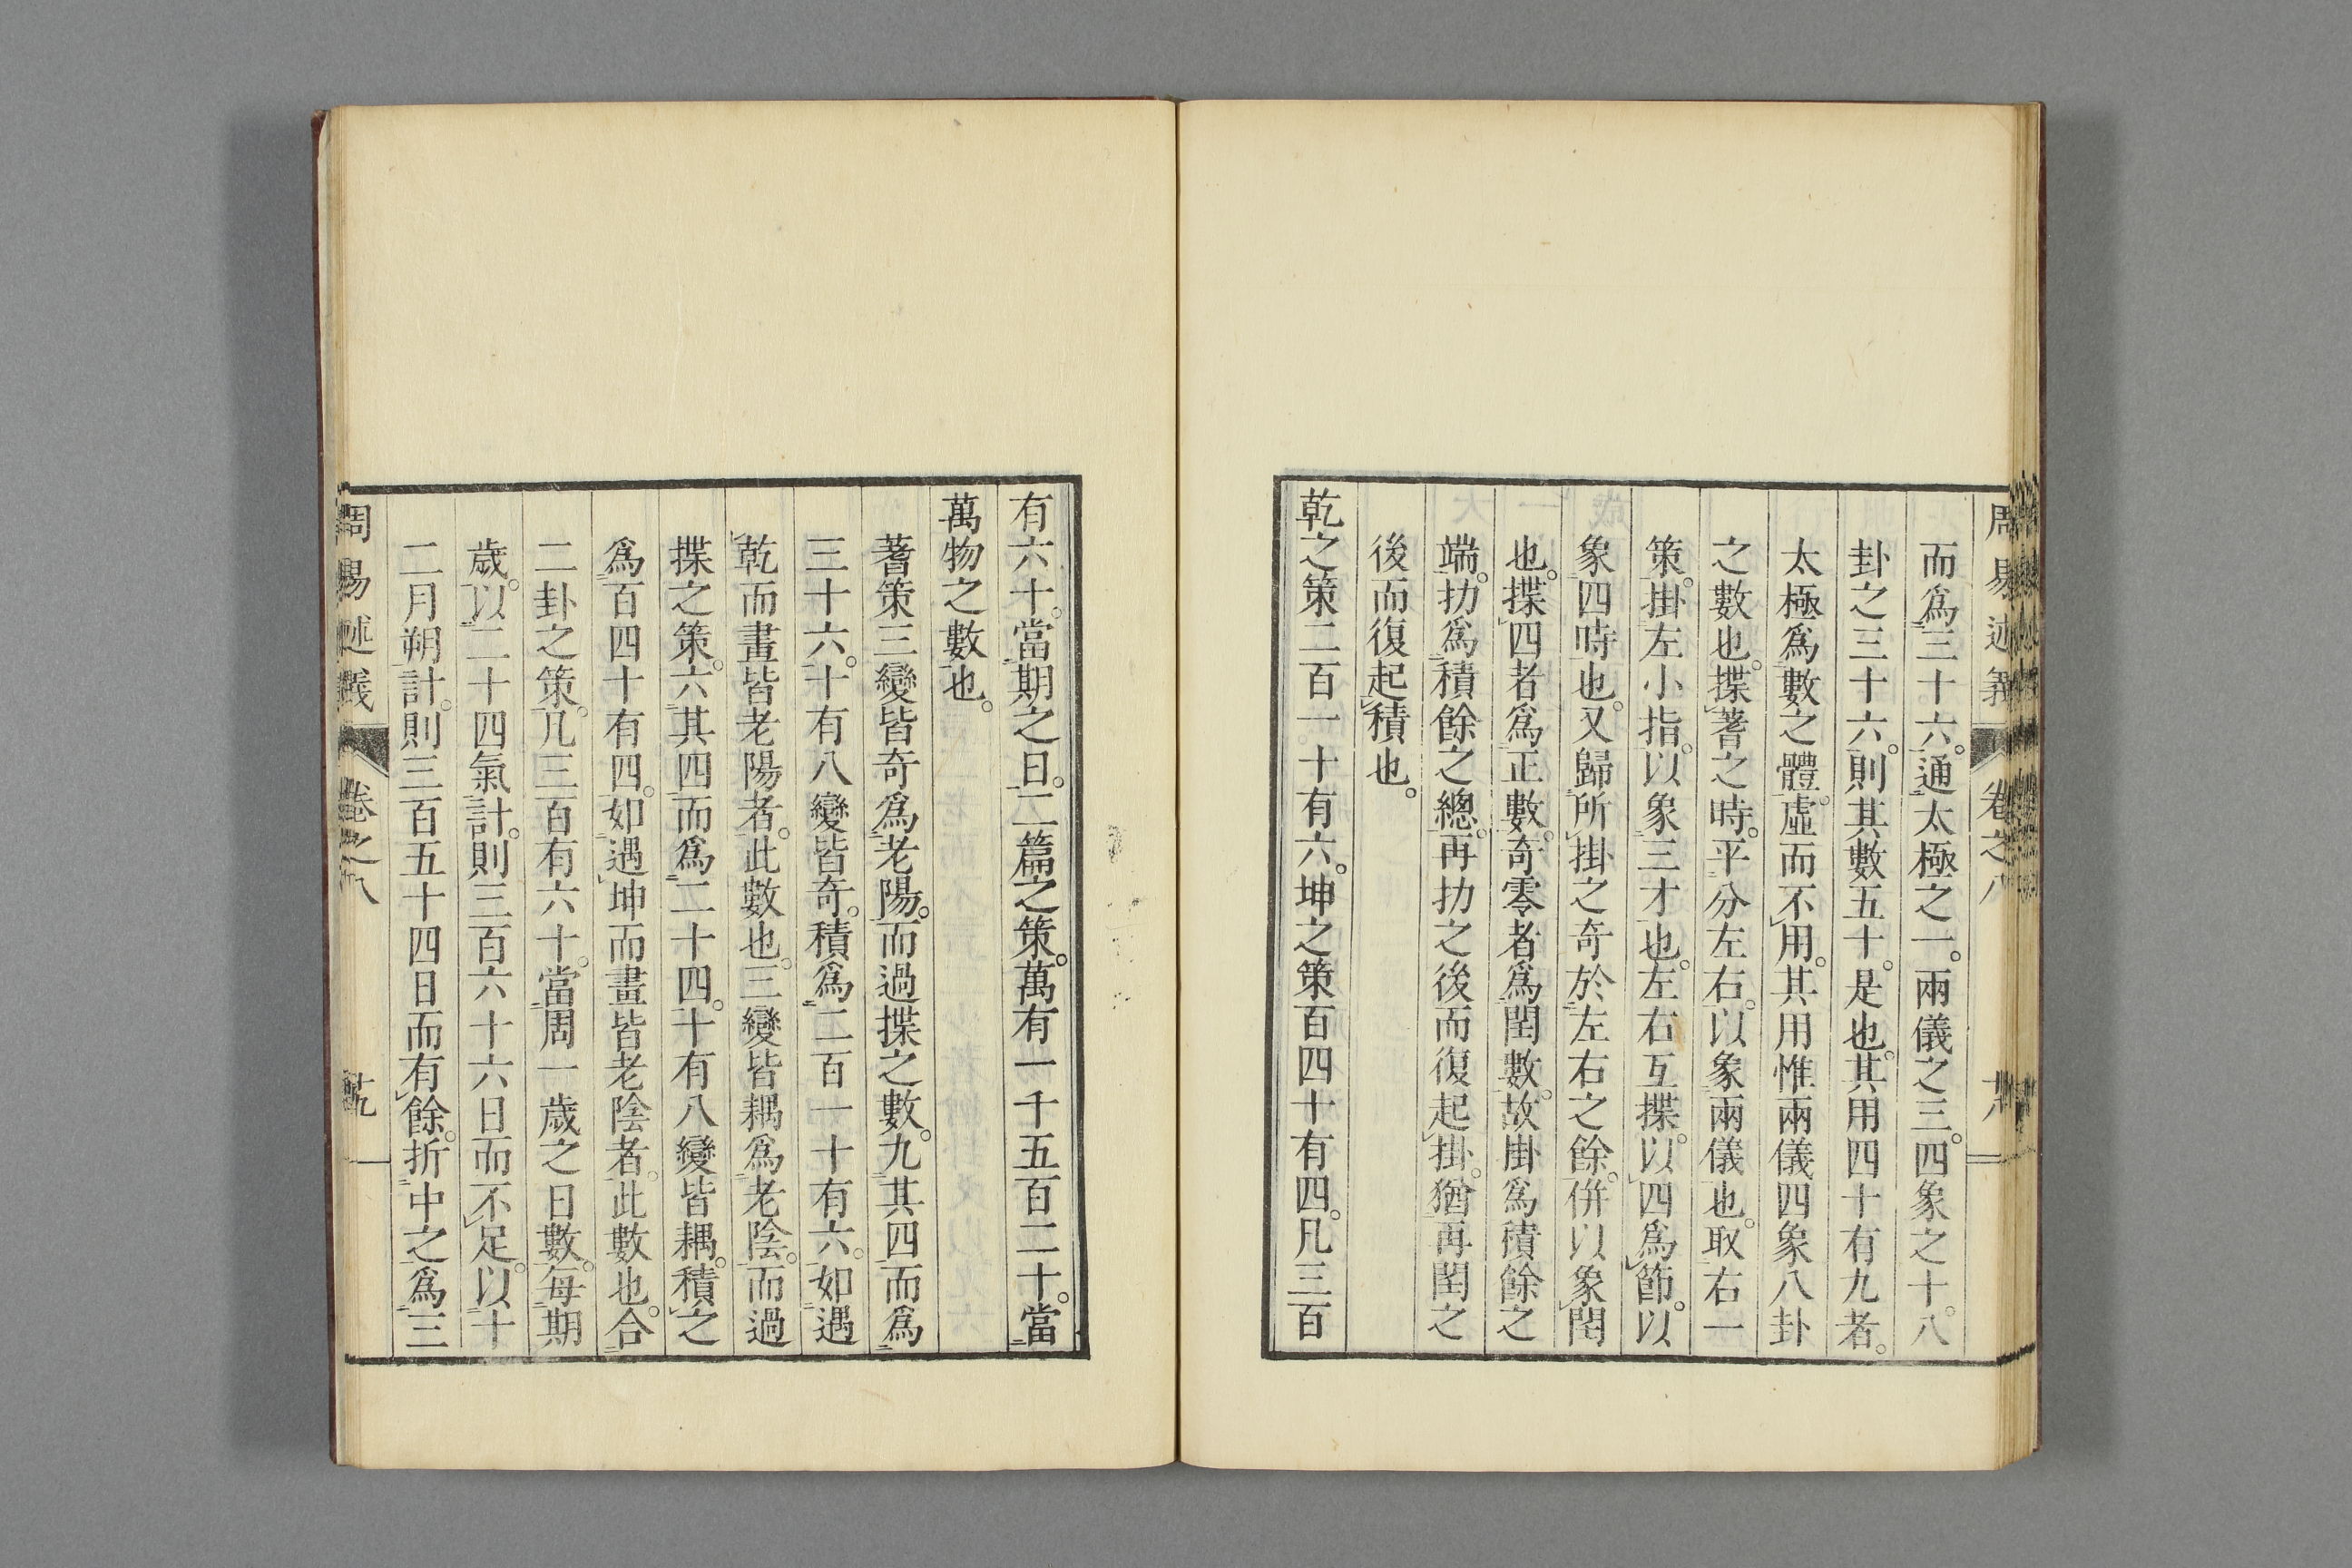 周易述義 卷之八
而爲三十六。通太極之一。兩儀之三。四象之十。八
卦之三十六。則其數五十。是也。其用四十有九者。
太極爲數之體。虛而不用。其用惟兩儀四象八卦
之數也。揲蓍之時。平分左右。以象兩儀也。取右一
策。掛左小指。以象三才也。左右互揲。以四爲節。以
象四時也。又歸所掛之奇於左右之餘。併以象閏
也。揲四者爲正數。奇零者爲閏數。故掛爲積餘之
端。扐爲積餘之總。再扐之後而復起掛。猶再閏之
後而復起積也。
乾之策二百一十有六。坤之策百四十有四。凡三百
有六十。當期之日。二篇之策。萬有一千五百二十。當
萬物之數也。
蓍策三變皆奇爲老陽。而過揲之數。九其四而爲
三十六。十有八變皆奇。積爲二百一十有六。如遇
乾而畫皆老陽者。此數也。三變皆耦爲老陰。而過
揲之策。六其四而爲二十四。十有八變皆耦。積之
爲百四十有四。如遇坤而畫皆老陰者。此數也。合
二卦之策。凡三百有六十。當周一歲之日數。每期
歲。以二十四氣計。則三百六十六日而不足。以十
二月朔計。則三百五十四日而有餘。折中之爲三
周易述義 卷之八 十九